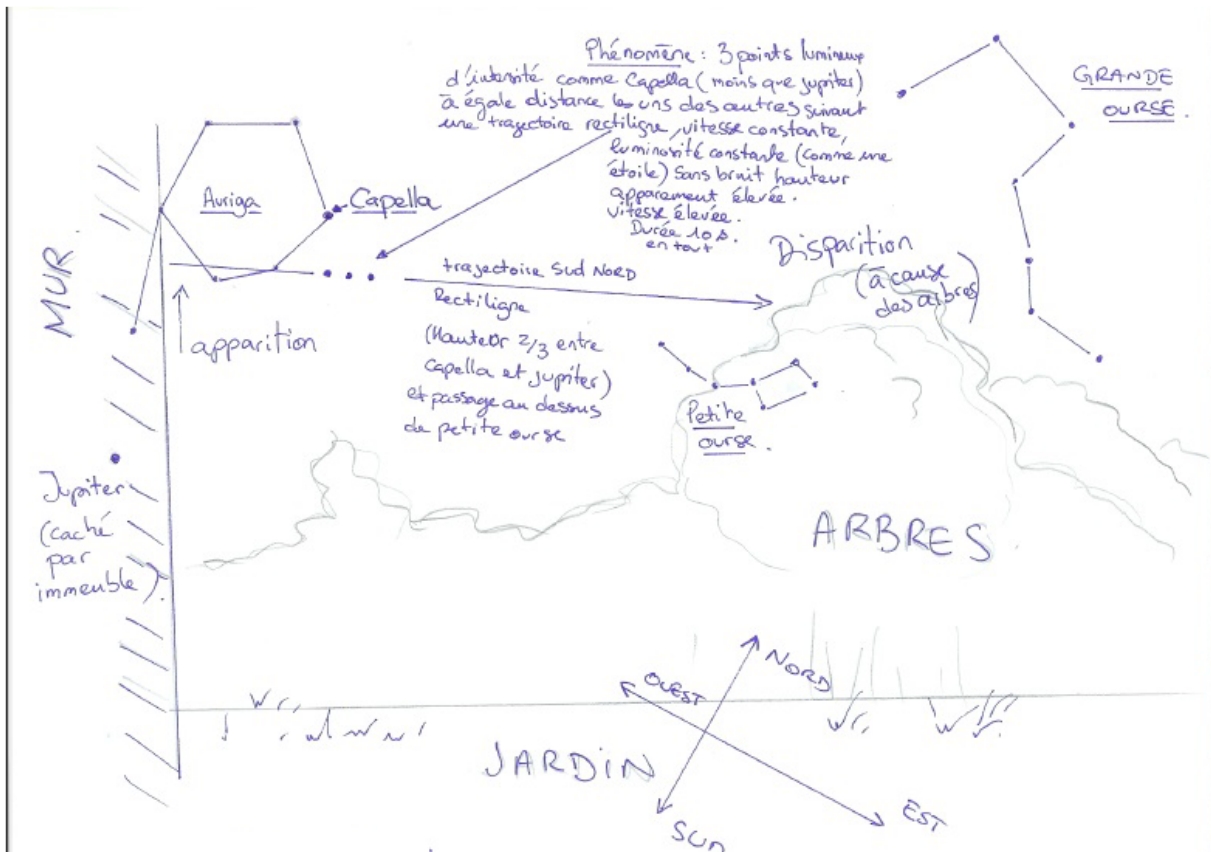 Phénomène : 3 points lumineux
d'intensité comme Capella (moins que jupiter)
à égale distance les uns des autres suivant
une trajectoire rectiligne, vitesse constante,
luminosité constante (comme une
étoile) Sans bruit hauteur
apparement élevée.
vitesse élevée.
Durée 10 s.
en tout
GRANDE
OURSE.
Auriga
Capella
MUR.
Disparition
(à cause
des arbres)
trajectoire Sud NORD
Rectiligne
(Hauteur 2/3 entre
Capella et jupiter)
et passage au dessus
de petite ourse
apparition
Petite
ourse.
Jupiter
(caché
par
immeuble).
ARBRES
NORD
OUEST
JARDIN
EST
SUD